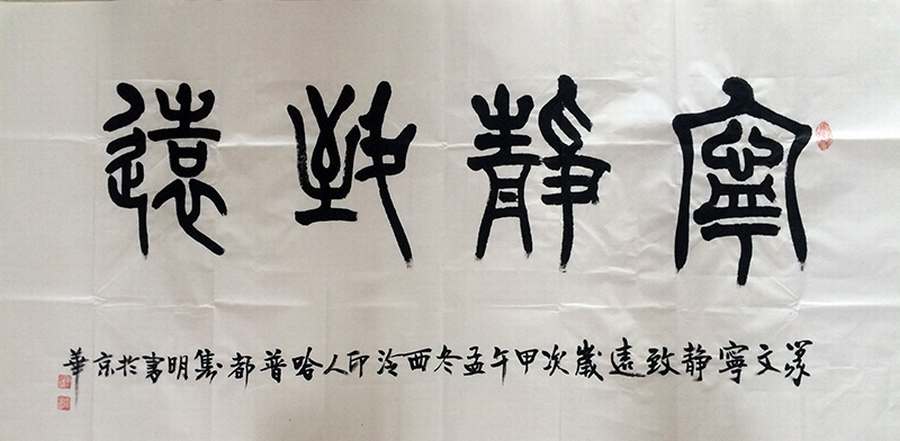 寧靜致遠
篆文寧静致遠歲次甲午孟冬西泠印人哈普都隽明書於京華